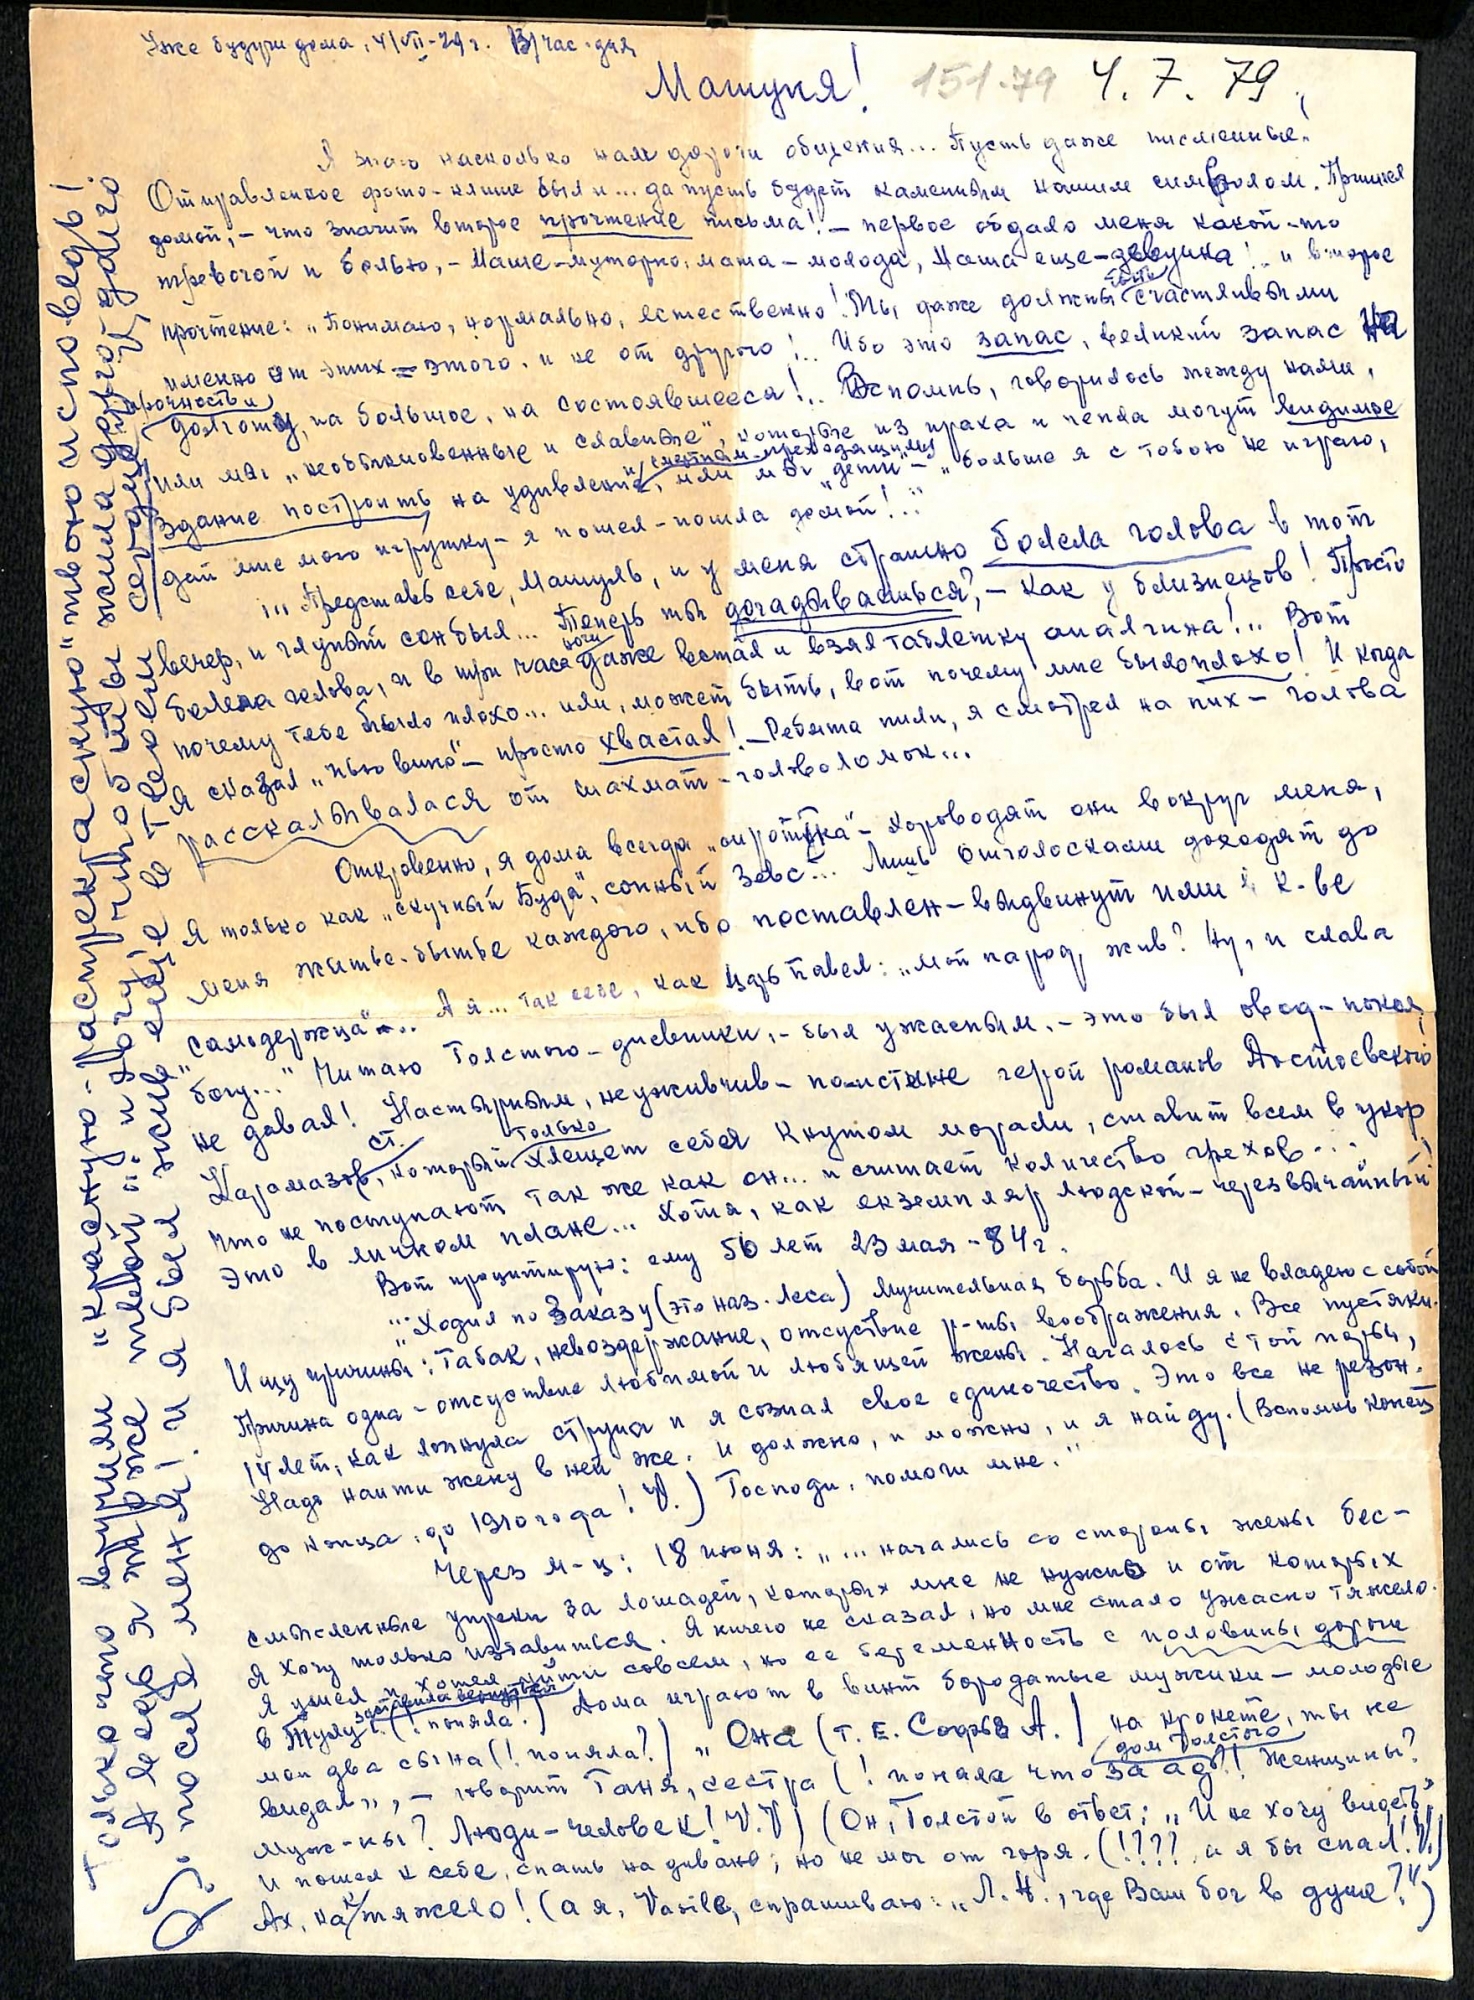 Уже будучи дома, 4/VII-79 г. В/час. дня
Машуня! 151-79 4.7.79
Я знаю насколько нам дороги общения... Пусть даже писменные.
Отправленное фото-клише были... да пусть будет каменным нашим символом. Пришел
домой, – что значит второе прочтение письма! – первое обдало меня какой-то
тревогой и болью, – Маше – муторно, маша – молода, Маша еще – девушка!.. и второе
прочтение: „Понимаю, нормально, естественно! Мы даже должны быть счастливыми
именно от этих = этого, и не от другого!.. Ибо это запас, великий запас на
прочность и долготу, на большое, на состоявшееся!.. Вспомнь, говорилось между нами,
или мы „необыкновенные и славные", которые из праха и пепла могут видимое
здание построить на удивление смертным-преходящим, или мы „дети" – „больше я с тобою не играю,
дай мне мою игрушку – я пошел-пошла домой!..."
... Представь себе, Машуль, и у меня страшно болела голова в тот
вечер, и глупый сон был... Теперь ты догадываешься?, – Как у близнецов! Просто
болела голова, и в три часа ночи даже встал и взял таблетку аналгина!.. Вот
почему тебе было плохо... или, может быть, вот почему мне было плохо! И когда
Я сказал „пью вино" – просто хвастал! – Ребята пили, я смотрел на них – голова
раскалывалася от шахмат – головоломок...
Откровенно, я дома всегда „сиротка" – хороводят они вокруг меня,
Я только как „скучный Буда", сонный Зевс... Лишь отголосками доходят до
меня житье-бытье каждого, ибо поставлен – выдвинут ими в к-ве
„самодержца"... А я... так себе, как Царь Павел: „Мой народ, жив? Ну, и слава
богу..." Читаю Толстого – дневники, – был ужасным, – это был овод – покоя
не давал! Настырным, неуживчив – по-истине герой романов Достоевского
Карамазов ст., который только хлещет себя кнутом морали, ставит всем в укор,
что не поступают так же как он... и считает количество грехов...
Это в личном плане... Хотя, как екземпляр людской – черезвычайный
Вот процитирую: ему 56 лет 23 мая – 84 г.
„...Ходил по Заказу (это наз. леса) Мучительная борьба. И я не владею с собой
Ищу причины: табак, невоздержание, отсуствие р-ты воображения. Все пустяки.
Причина одна – отсуствие любимой и любящей жены. Началось с той поры,
14 лет, как лопнула струна и я сознал свое одиночество. Это все не резон.
Надо найти жену в ней же. И должно, и можно, и я найду. (Вспомнь конец
до конца, до 1910 года! V.) Господи, помоги мне."
Через м-ц: 18 июня: „... начались со стороны жены бес-
смысленные упреки за лошадей, которых мне не нужно и от которых
Я хочу только избавиться. Я ничего не сказал, но мне стало ужасно тяжело.
Я ушел и хотел уйти совсем, но ее беременность с половины дороги
в Тулу заставила вернуться (! поняла!) Дома играют в винт бородатые мужики – молодые
мои два сына (! поняла?) „Она (т.е. Софья А.) на крокете, ты не
видал", – говорит Таня, сестра (! поняла что за ад дом Толстого!! Женщины?
Муж-ны? Люди – человек! V.V) (Он, Толстой в ответ: „И не хочу видеть".
И пошел к себе, спать на диване; но не мог от горя. (!???, а я бы спал! V.)
Ах, как тяжело! (а я, Vasile, спрашиваю: „Л.Н., где Ваш бог в душе?")
Только что вручили "красную-распрекрасную" твою исповедь!
А ведь я тоже твой"; и хочу, чтобы ты жила долго, долго
после меня! и я был жив еще в твоем сердце!